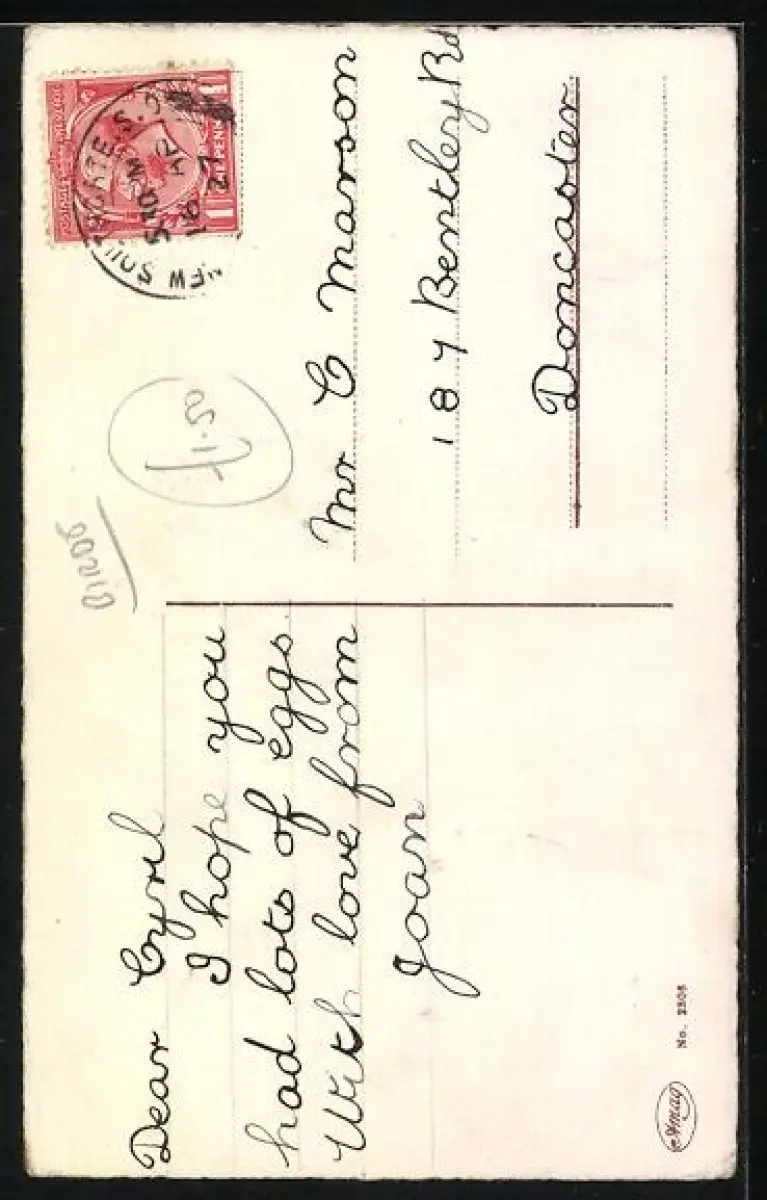 Dear Cyril
I hope you
had lots of eggs.
With love from
Joan
Mr C Marson
187 Bentley Rd
Doncaster
£1.50
NEW SOUTHGATE S.O.
16 AP 27
Amag
No. 2508